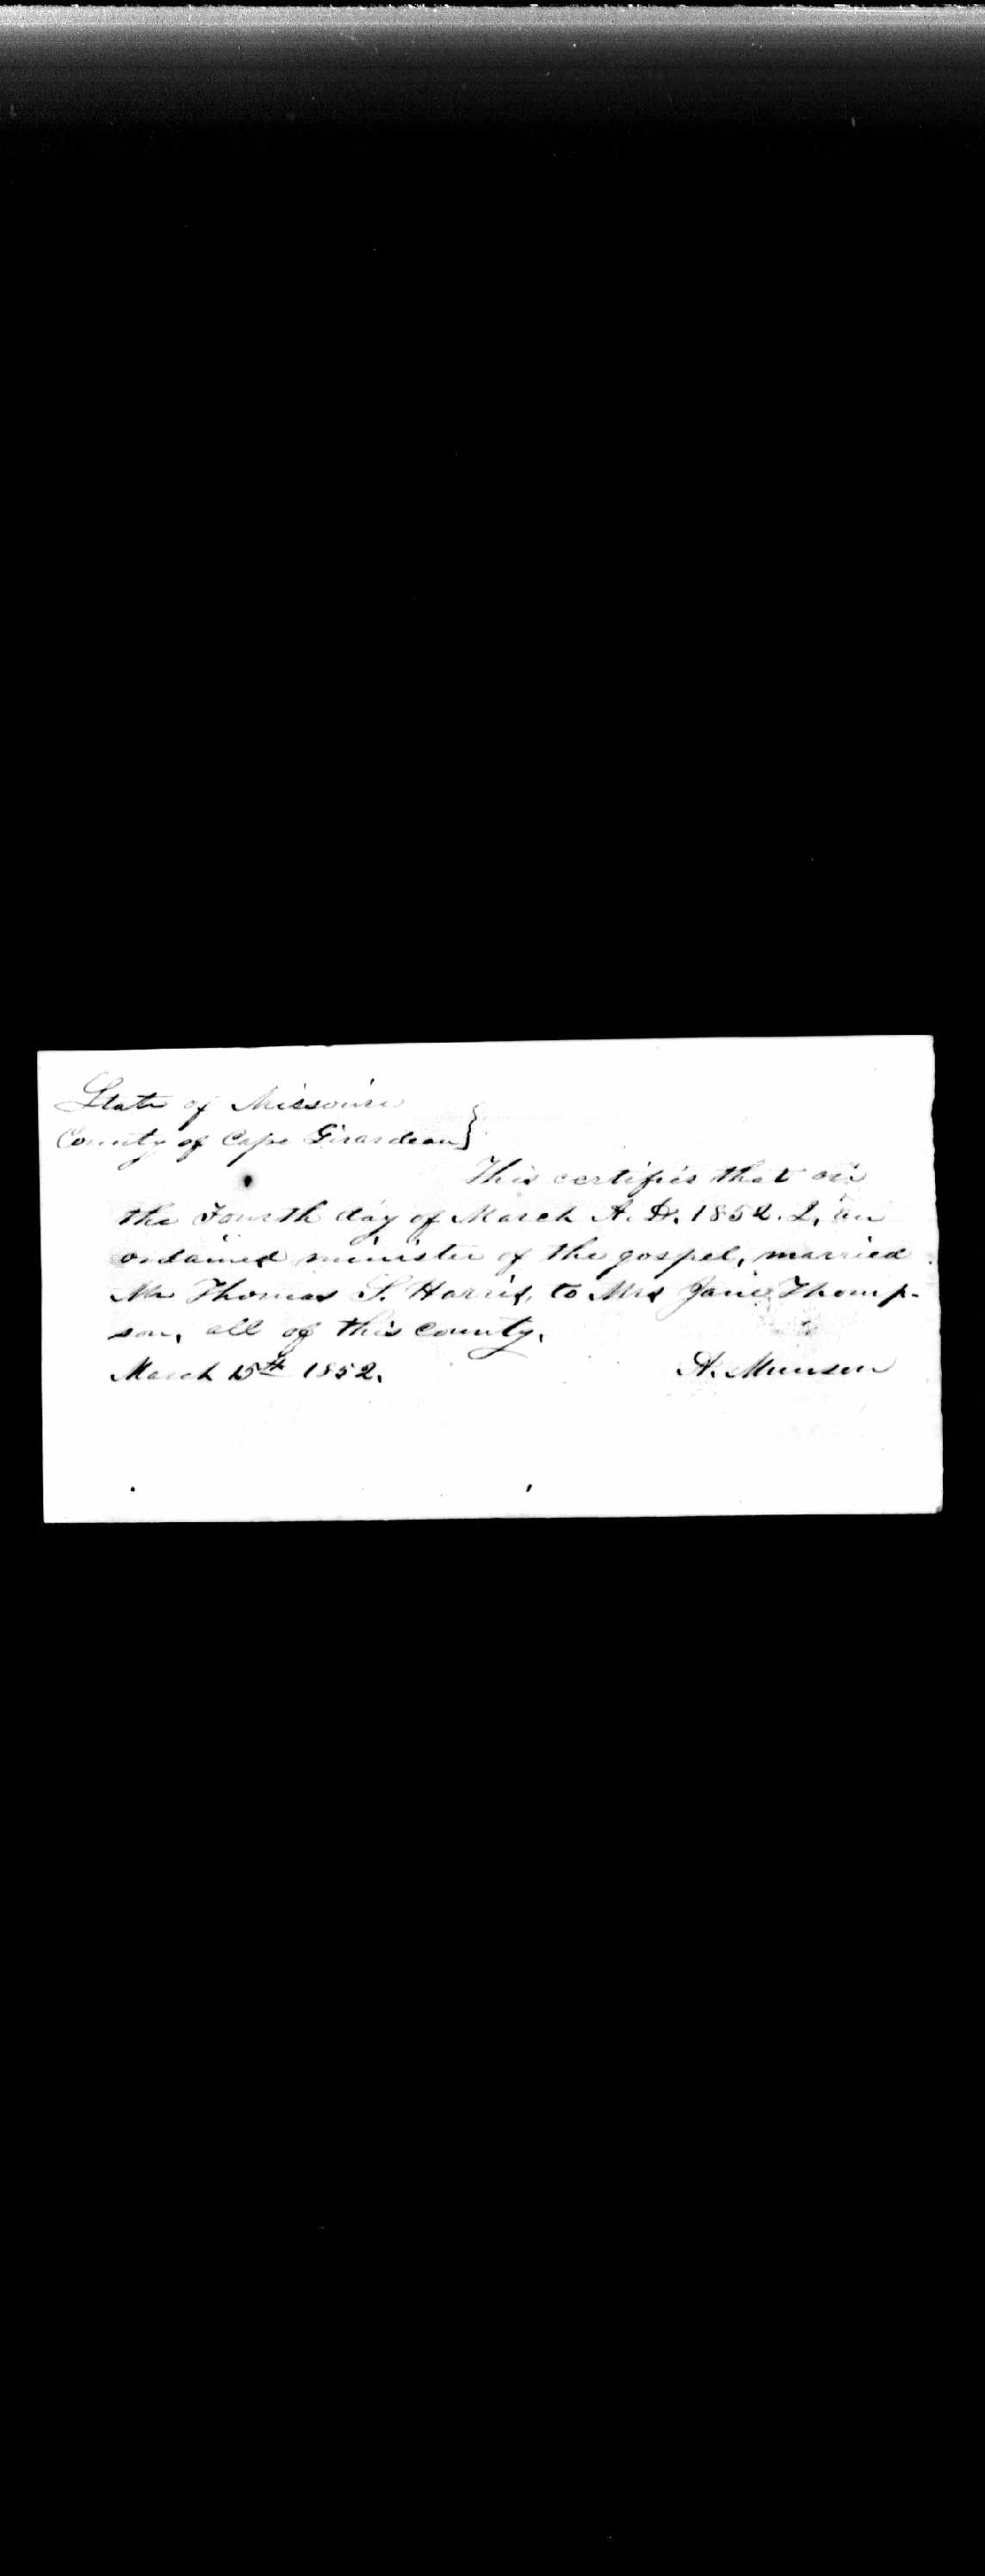 State of Missouri
County of Cape Girardeau }
This certifies that on
the Fourth day of March A. D. 1852. I, an
ordained minister of the gospel, married
Mr Thomas S. Harris, to Mrs Jane Thomp-
son, all of this County.
March 15th 1852. A. Munson